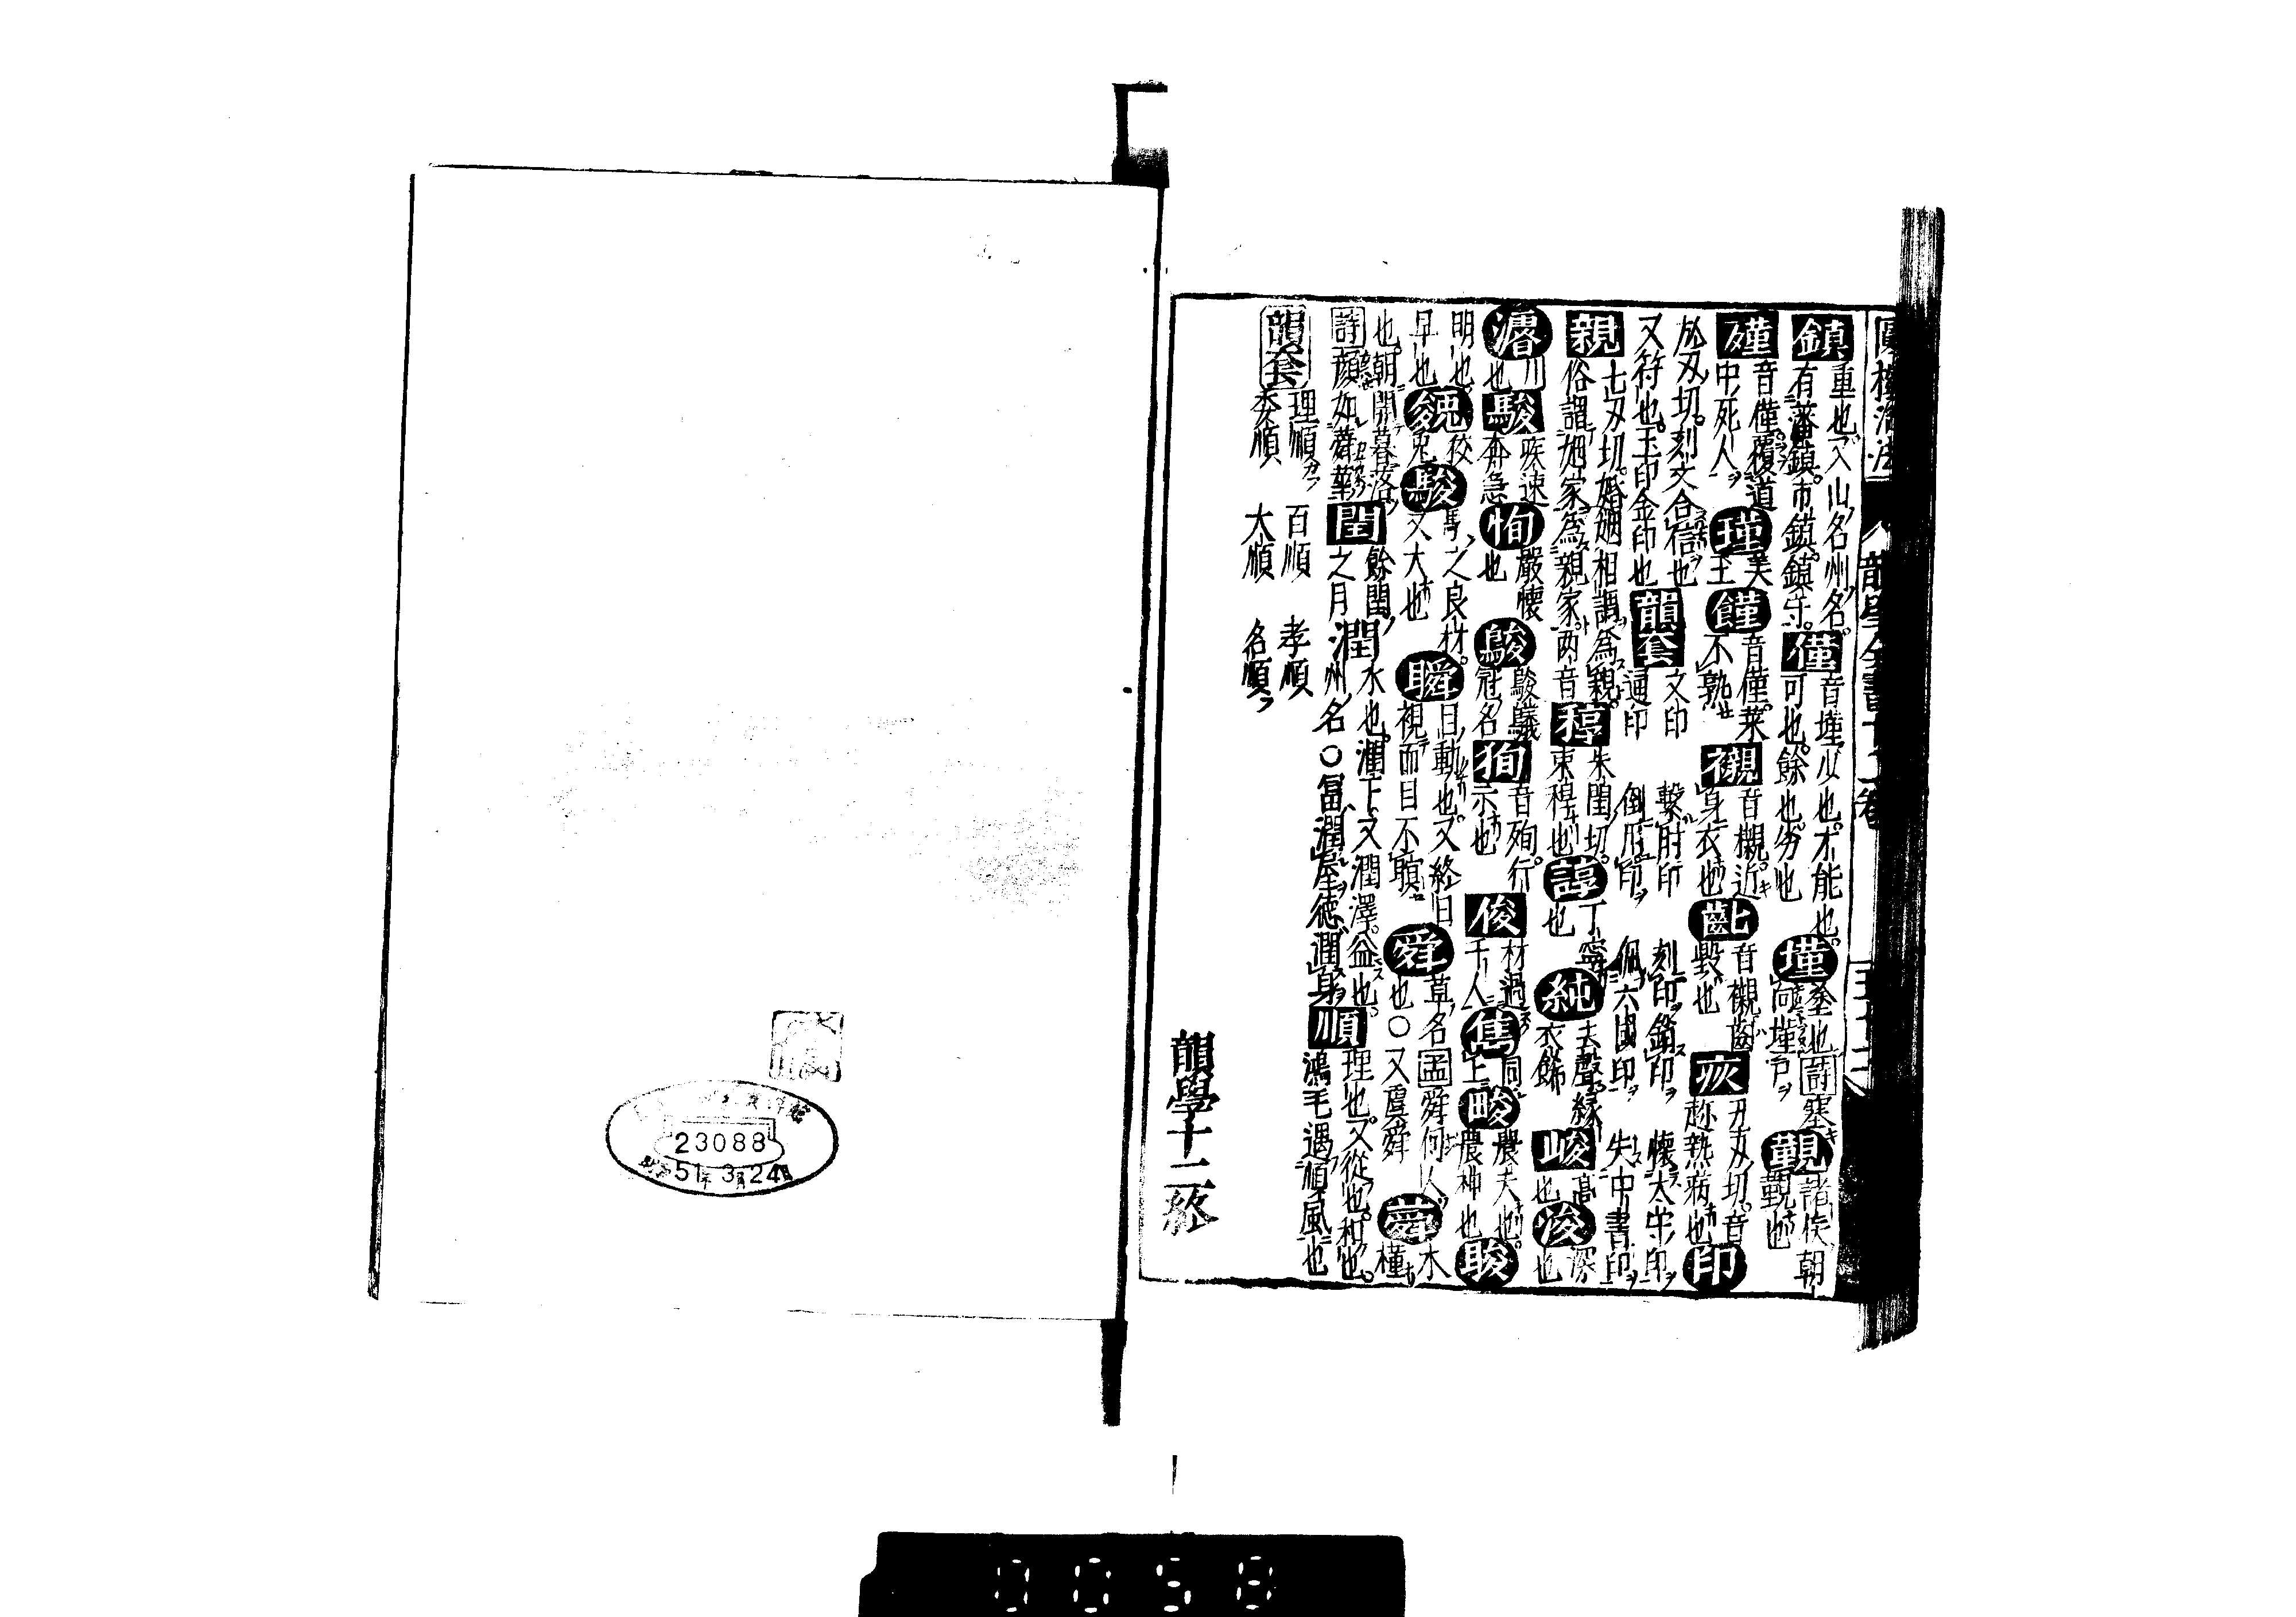 韻學全書十二卷
鎮 重也又山名州名有藩鎮市鎮鎮守 僅 音墐少也才能也可也餘也劣也 墐 塗也詩塞向墐戸 覲 諸侯朝
殣 音僅覆道中死人 瑾 美玉 饉 音僅菜不熟 襯 音櫬近身衣也 齔 音櫬齒毀也 疢 丑刃切音趂熱病也 印
於刃切刻文合信也又符也玉印金印也 韻套 文印 通印 繫肘印 倒用印 刻印銷印 佩六國印 懷太守印 失中書印
親 七刃切婚姻相謂為親俗謂姻家為親家兩音 稕 朱閏切束稈也 諄 丁寧也 純 去聲緣衣餙 峻 高也 浚 深也
濬 川也 駿 疾速奔急 恂 嚴慄也 鵔 鵔鸃冠名 狥 音殉行示也 俊 材過千人 雋 同上 畯 農夫也農神也 晙
明也早也 㕙 狡兔 駿 馬之良材又大也 瞬 目動也又終日視而目不瞚 舜 草名孟舜何人也○又虞舜 蕣 木槿
也朝開暮落詩顔如蕣華 閏 餘閏之月 潤 水也潤下又潤澤益也州名○冨潤屋徳潤身 順 理也又從也和也鴻毛遇順風也
韻套 理順 委順 百順 大順 孝順 名順
韻學十二終
23088
51年3月24日
0058